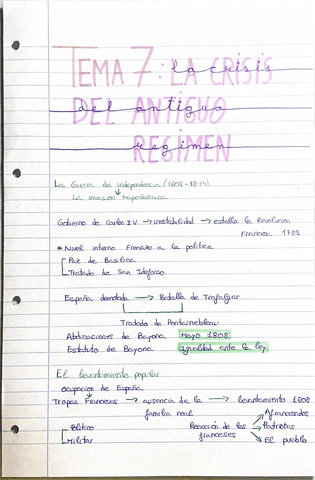 TEMA 7: LA CRISIS
la crisis
DEL ANTIGUO
del antiguo
REGIMEN
regimen
La Guerra de independencia (1808-1814)
La invasión Napoleónica
Gobierno de Carlos IV → inestabilidad → estalla la Revolución
Francesa 1789
* Nivel interno Frenazo a la política
Paz de Basilea
Tratado de San Ildefonso
España derrotada → Batalla de Trafalgar
Tratado de Fontainebleau
Abdicaciones de Bayona Mayo 1808
Estatuto de Bayona Igualdad ante la ley
El levantamiento popular
ocupacion de España
Tropas Francesas → ausencia de la → levantamiento 1808
familia real
Político
Militar
Reacción de los
franceses
Afrancesados
Patriotas
El pueblo